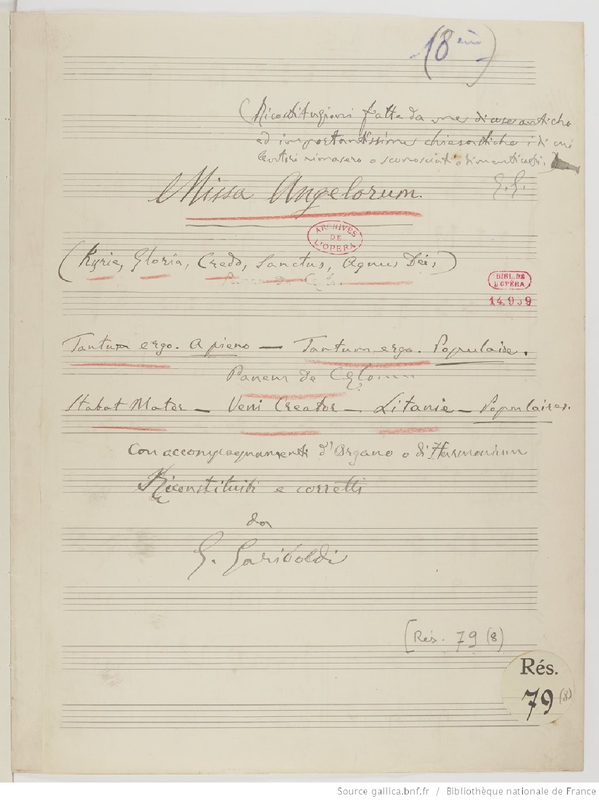 (8 ème)
(Ricostituzioni fatte da me
ed importantissime chiesastiche; di cui
rimasero o sconosciuti o
G. G.
Missa Angelorum.
ARCHIVES
DE
L'OPERA
(Kyrie, Gloria, Credo, Sanctus, Agnus Dei,)
BIBL. DE
L'OPÉRA
14.939
Tantum ergo. A pieno — Tantum ergo. Populaire.
Panem de Cælo
Stabat Mater — Veni Creator — Litanie — Populaires.
Con accompagnamenti d'Organo o d'Harmonium
Ricostituiti e corretti
da
G. Gariboldi
[Rés. 79 (8)
Rés.
79 (8)
Source gallica.bnf.fr / Bibliothèque nationale de France